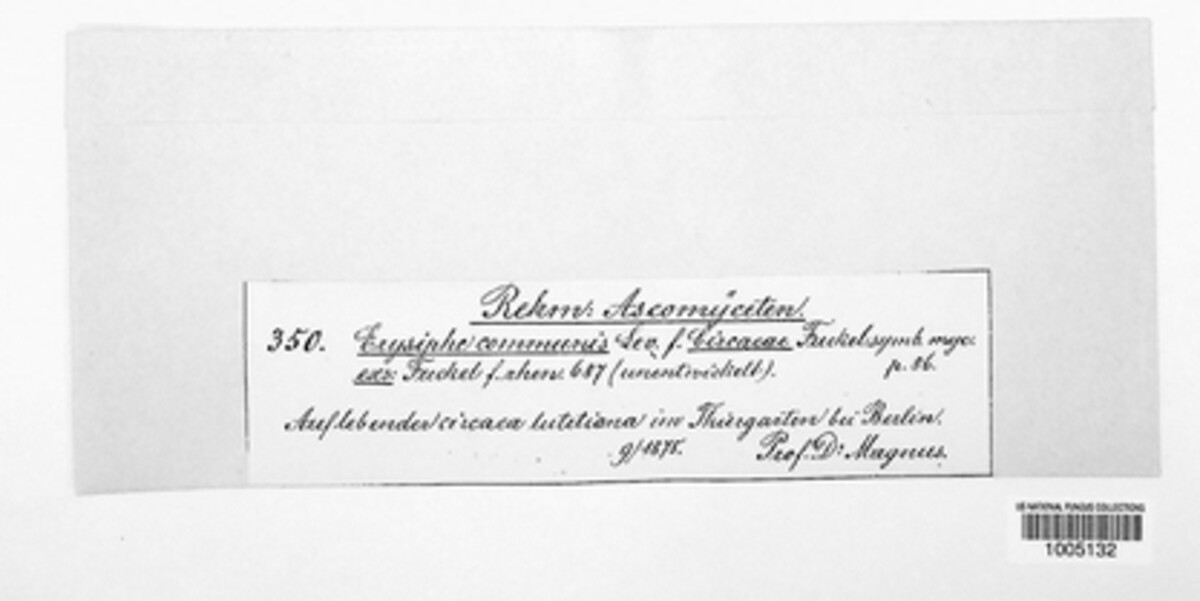 Rehm: Ascomÿceten.
350. Erysiphe communis Lev. f. Circaeae Fuckel symb. myc.
p. 86.
exs: Fuckel f. rhen. 687 (unentwickelt).
Auf lebender circaea lutetiana im Thiergarten bei Berlin.
9/1875. Prof. Dr Magnus.
US NATIONAL FUNGUS COLLECTIONS
1005132